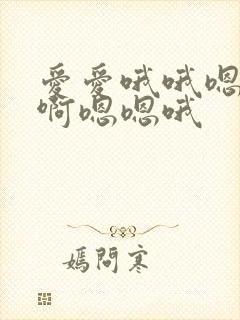 爱爱哦哦嗯
啊嗯嗯哦
媽問寒